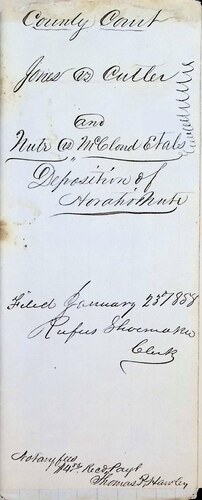 County Court
Jones vs Cutler
and
Nute vs McCloud Etals
Deposition of
Horatio Nute
Filed January 23d 1858
Rufus Shoemaker
Clerk
Notary fees
Recd Payt
Thomas P Hawley